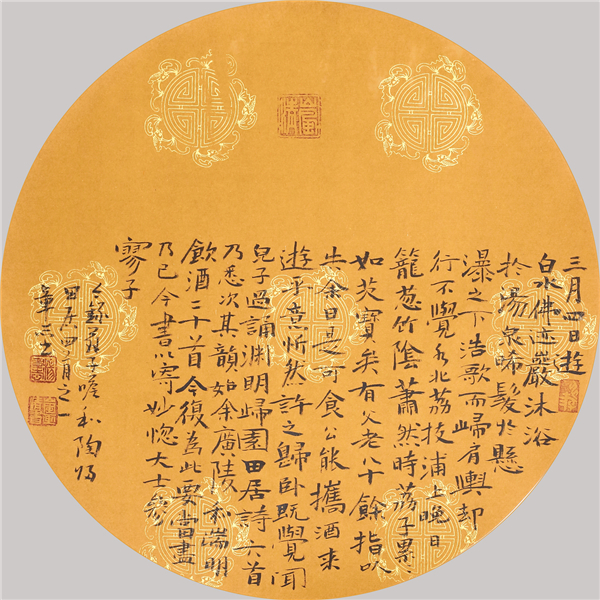 三月四日遊
白水佛迹巖沐浴
於湯泉晞髮於懸
瀑之下浩歌而歸有輿却
行不覺水北荔枝浦上晚日
籠葱竹陰蕭然時荔子累々
如芡實矣有父老八十餘指以
告余曰是可食公能攜酒来
遊乎意忻然許之歸卧既覺聞
兒子過誦渊明歸園田居詩六首
乃悉次其韻如余廣陵和淵明
飲酒二十首今復為此要當盡
乃已今書以寄妙惚大士参
寥子
子瞻和陶詩
甲辰四月之一
章